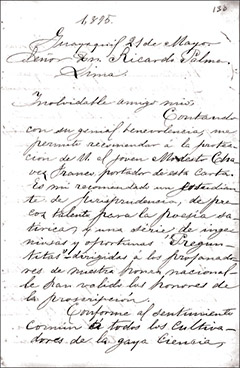 130
1,895.
Guayaquil 21 de Mayo
Señor Dn. Ricardo Palma
Lima.
Inolvidable amigo mio
Contando
con su genial benevolencia, me
permito recomendar á la protec
cion de U. el joven Modesto Cha
vez Franco, portador de esta Carta.
Es mi recomendado un estudian
te de Jurisprudencia, de pre
coz talento para la poesia sa
tirica, y una série de inge
niosas y oportunas "Pregun
titas" dirigidas á los profanado
res de nuestra honra nacional
le han valido los honores de
la proscripcion.
Conforme al sentimiento
comun á todos los cultiva
dores de la gaya ciencia,